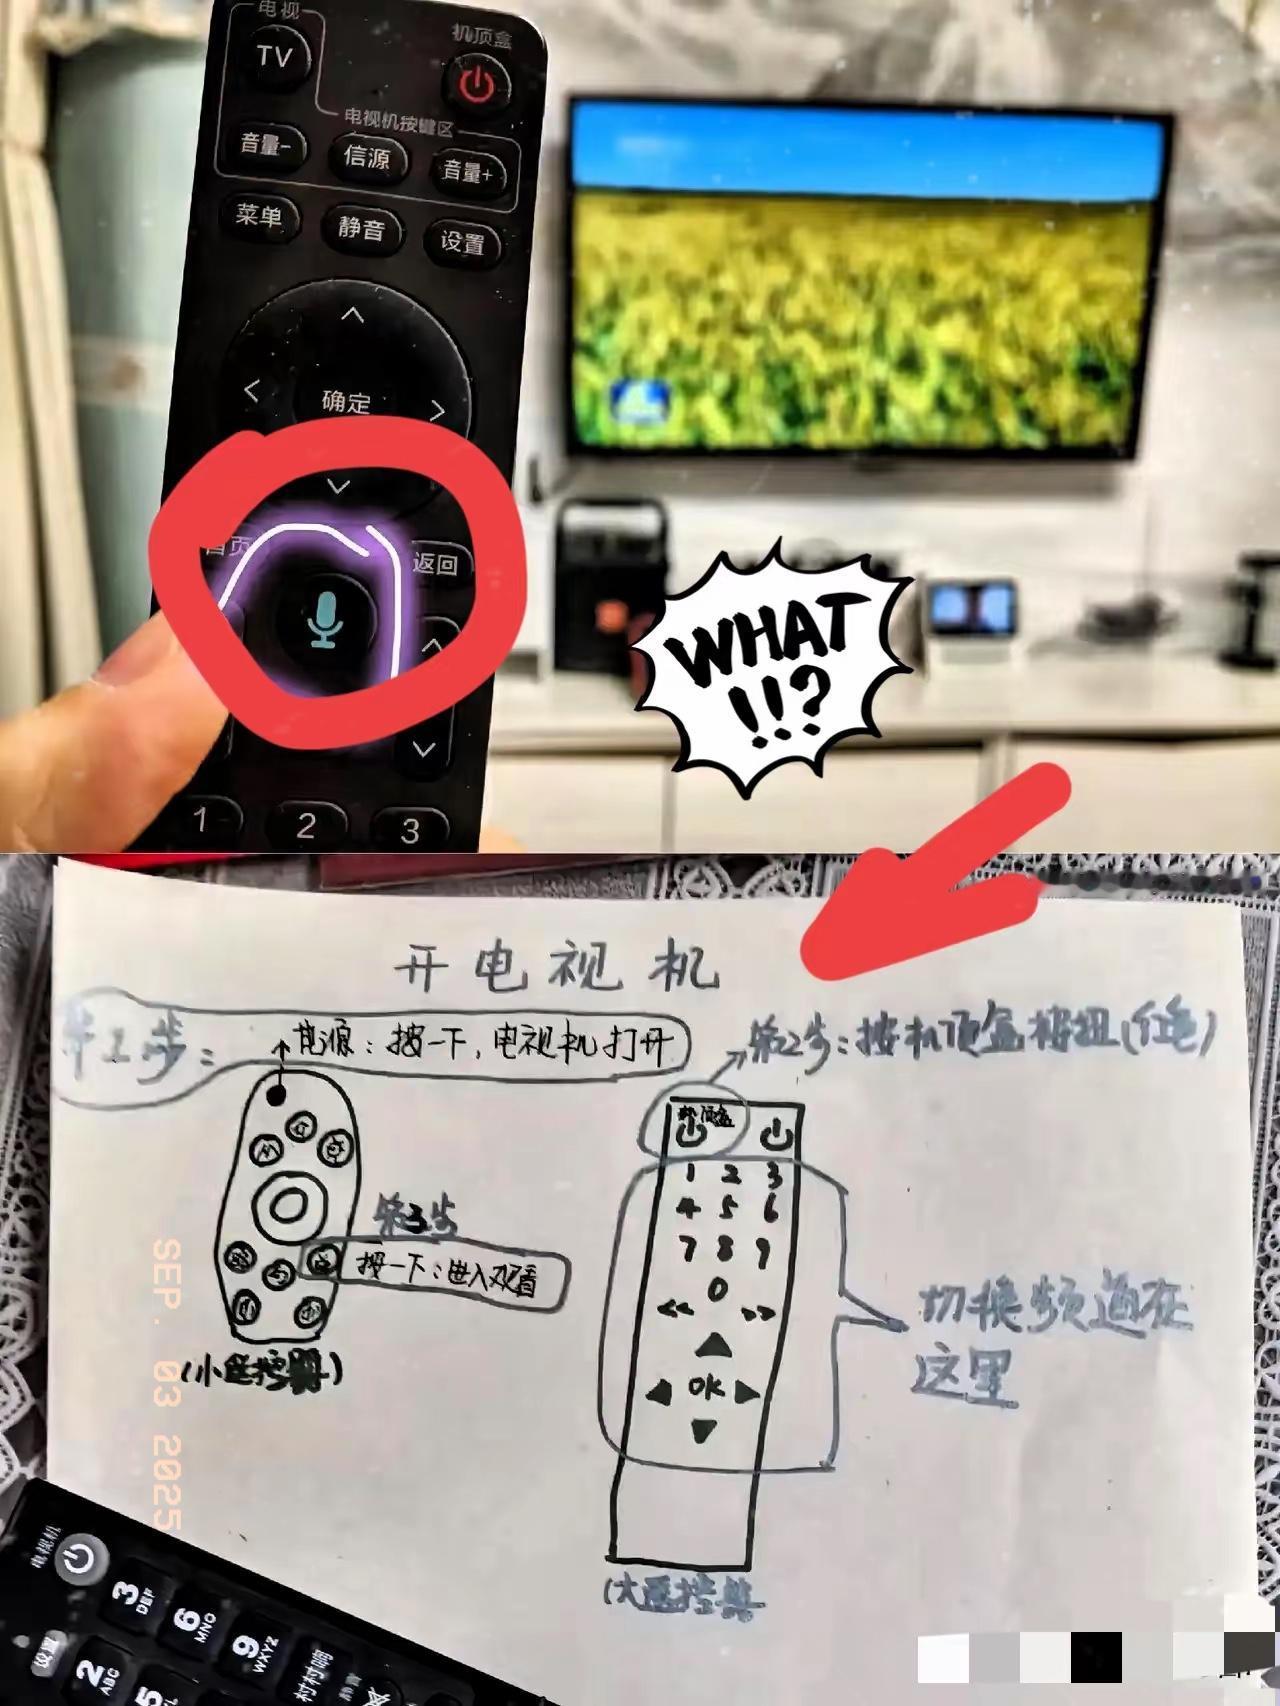 电视
机顶盒
TV
电视机按键区
音量-
信源
音量+
菜单
静音
设置
确定
首页
返回
1
2
3
WHAT
!!?
开电视机
第1步：
电源：按一下，电视机打开
第2步：按机顶盒按钮(红色)
机顶盒
1 2 3
4 5 6
7 8 9
0
OK
第3步
按一下：进入观看
切换频道在
这里
(小遥控器)
(大遥控器
SEP. 03 2025
电视机
3 DEF
6 MNO
9 WXYZ
村村响
设置
2 ABC
5
静音